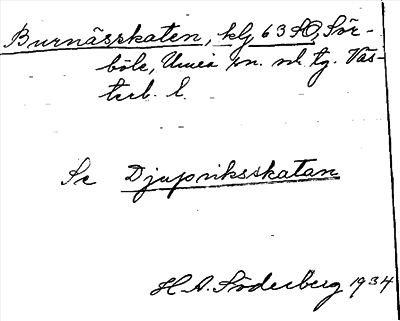 Burnässkaten, klj 63 SO, Sör-
böle, Umeå sn. nl. tg. Väs-
terb. l.
Se Djupviksskatan
H.A. Söderberg 1934